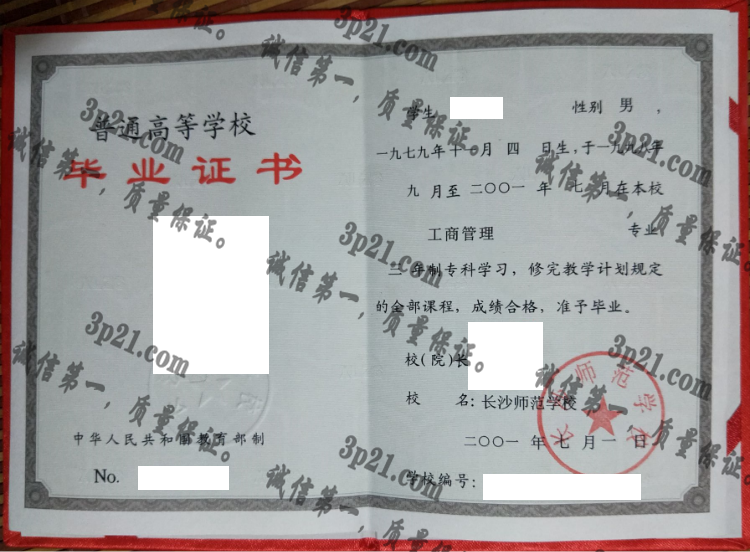 普通高等学校
毕业证书
中华人民共和国教育部制
No.
学生 性别 男 ，
一九七九年十 月 四 日生，于一九九八年
九 月至 二〇〇一 年 七 月在本校
工商管理 专业
年制专科学习，修完教学计划规定
的全部课程，成绩合格，准予毕业。
校(院)长
校 名：长沙师范学校
二〇〇一 年 七 月 一 日
学校编号：
长沙师范学校
3p21.com
诚信第一，质量保证。
3p21.com
诚信第一，质量保证。
3p21.com
诚信第一，质量保证。
3p21.com
诚信第一，质量保证。
3p21.com
诚信第一，质量保证。
3p21.com
诚信第一，质量保证。
3p21.com
诚信第一，质量保证。
保证。